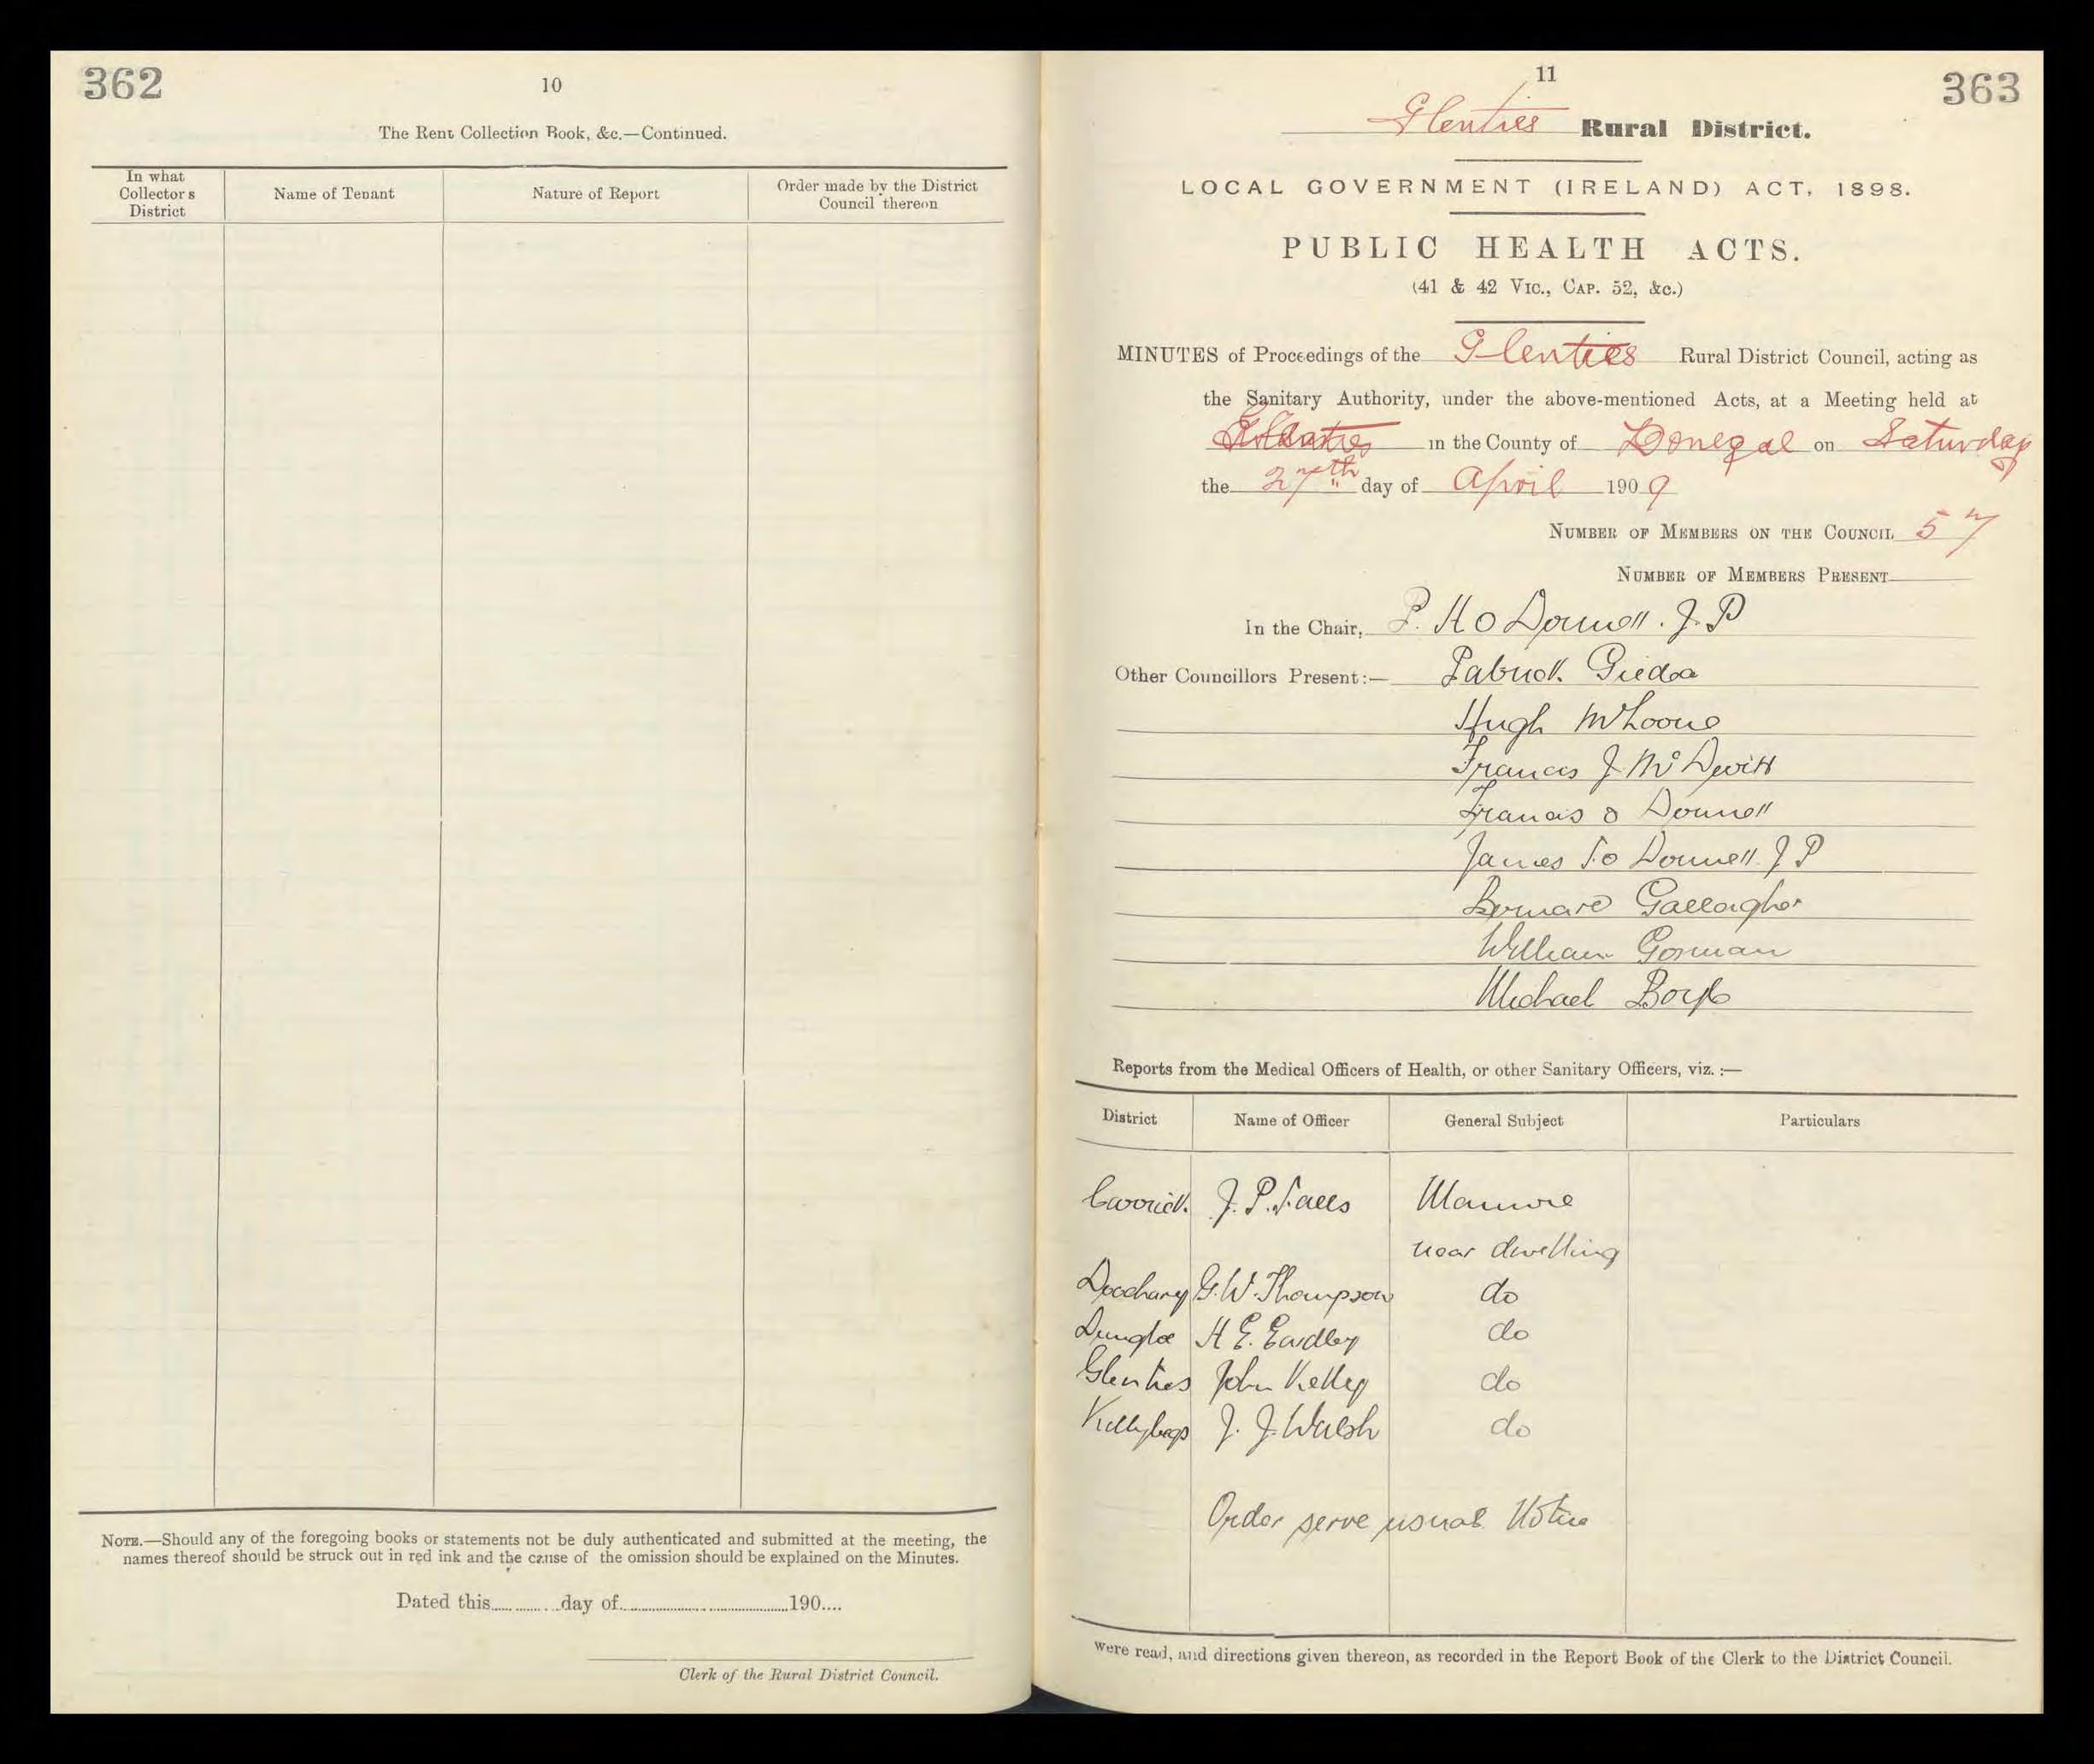 362
10
The Rent Collection Book, &c.—Continued.
In what Collectors District
Name of Tenant
Nature of Report
Order made by the District Council thereon
NOTE.—Should any of the foregoing books or statements not be duly authenticated and submitted at the meeting, the
names thereof should be struck out in red ink and the cause of the omission should be explained on the Minutes.
Dated this............day of..............................190....
Clerk of the Rural District Council.
11
363
Glenties Rural District.
LOCAL GOVERNMENT (IRELAND) ACT, 1898.
PUBLIC HEALTH ACTS.
(41 & 42 VIC., CAP. 52, &c.)
MINUTES of Proceedings of the Glenties Rural District Council, acting as
the Sanitary Authority, under the above-mentioned Acts, at a Meeting held at
Glenties in the County of Donegal on Saturday
the 27th day of April 1909
NUMBER OF MEMBERS ON THE COUNCIL 57
NUMBER OF MEMBERS PRESENT
In the Chair, P. H O Donnell. J. P
Other Councillors Present:— Patrick
Hugh McLoone
Francis J. McDevitt
Francis O Donnell
James F. O Donnell J P
Bernard Gallagher
William Gorman
Michael Boyle
Reports from the Medical Officers of Health, or other Sanitary Officers, viz. :—
District Name of Officer General Subject Particulars
Carrick. J. P. Falls Manure
near dwelling
Doochary G. W. Thompson do
Dungloe H E. Eardley do
Glenties John Kelley do
Killybegs J. J. Walsh do
Order serve usual Notice
were read, and directions given thereon, as recorded in the Report Book of the Clerk to the District Council.